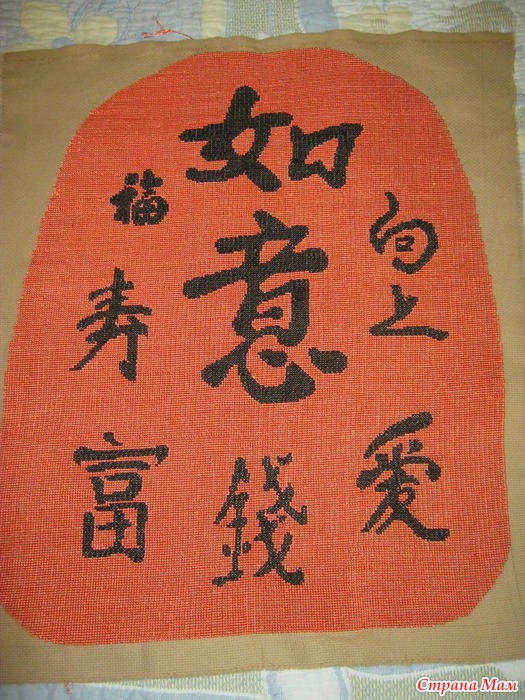 如意
向上
愛
錢
福
寿
富
Страна Мам